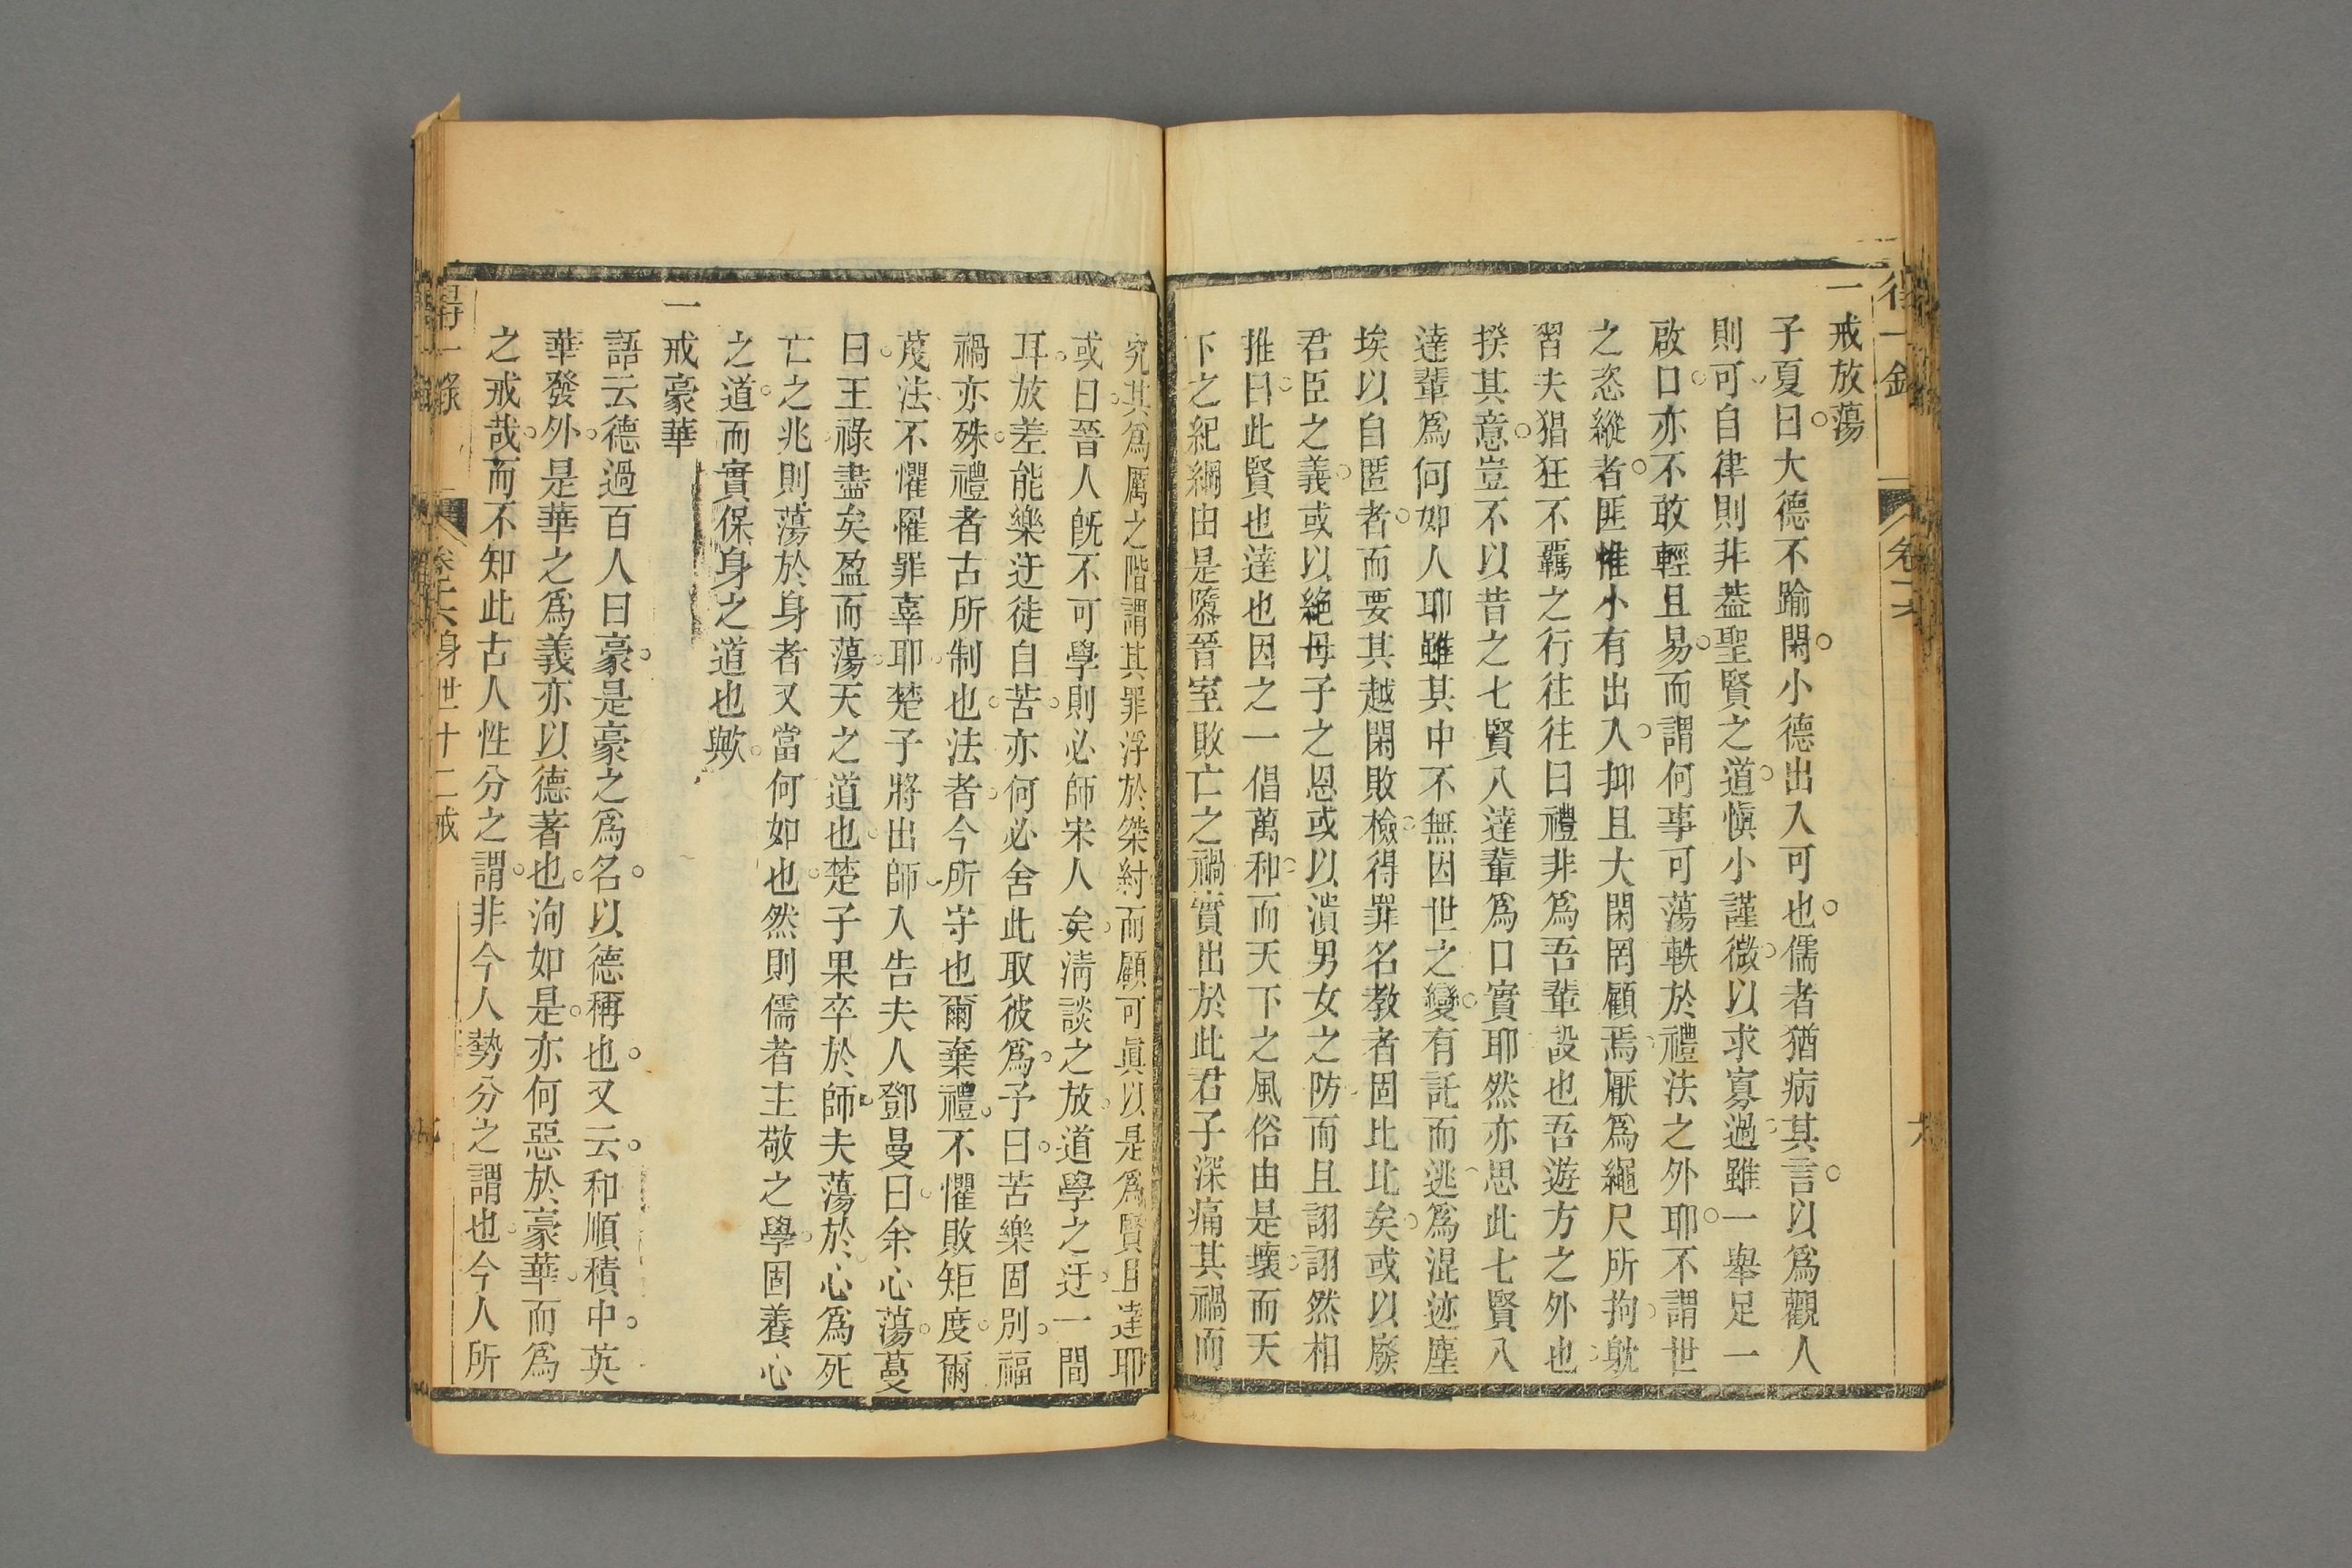 得一錄
卷十六
一戒放蕩
子夏曰大德不踰閑小德出入可也儒者猶病其言以爲觀人
則可自律則非葢聖賢之道愼小謹微以求寡過雖一舉足一
啟口亦不敢輕且易而謂何事可蕩軼於禮法之外耶不謂世
之恣縱者匪惟小有出入抑且大閑罔顧焉厭爲繩尺所拘躭
習夫猖狂不羈之行往往曰禮非爲吾輩設也吾遊方之外也
揆其意豈不以昔之七賢八達輩爲口實耶然亦思此七賢八
達輩爲何如人耶雖其中不無因世之變有託而逃爲混迹塵
埃以自匿者而要其越閑敗檢得罪名教者固比比矣或以廢
君臣之義或以絶母子之恩或以潰男女之防而且詡詡然相
推曰此賢也達也因之一倡萬和而天下之風俗由是壞而天
下之紀綱由是隳晉室敗亡之禍實出於此君子深痛其禍而
究其爲厲之階謂其罪浮於桀紂而顧可眞以是爲賢且達耶
或曰晉人旣不可學則必師宋人矣淸談之放道學之迂一間
耳放差能樂迂徒自苦亦何必舍此取彼爲予曰苦樂固別福
禍亦殊禮者古所制也法者今所守也爾棄禮不懼敗矩度爾
蔑法不懼罹罪辜耶楚子將出師入告夫人鄧曼曰余心蕩蔓
曰王祿盡矣盈而蕩天之道也楚子果卒於師夫蕩於心爲死
亡之兆則蕩於身者又當何如也然則儒者主敬之學固養心
之道而實保身之道也歟
一戒豪華
語云德過百人曰豪是豪之爲名以德稱也又云和順積中英
華發外是華之爲義亦以德著也洵如是亦何惡於豪華而爲
之戒哉而不知此古人性分之謂非今人勢分之謂也今人所
得一錄
卷十六
身世十二戒
九